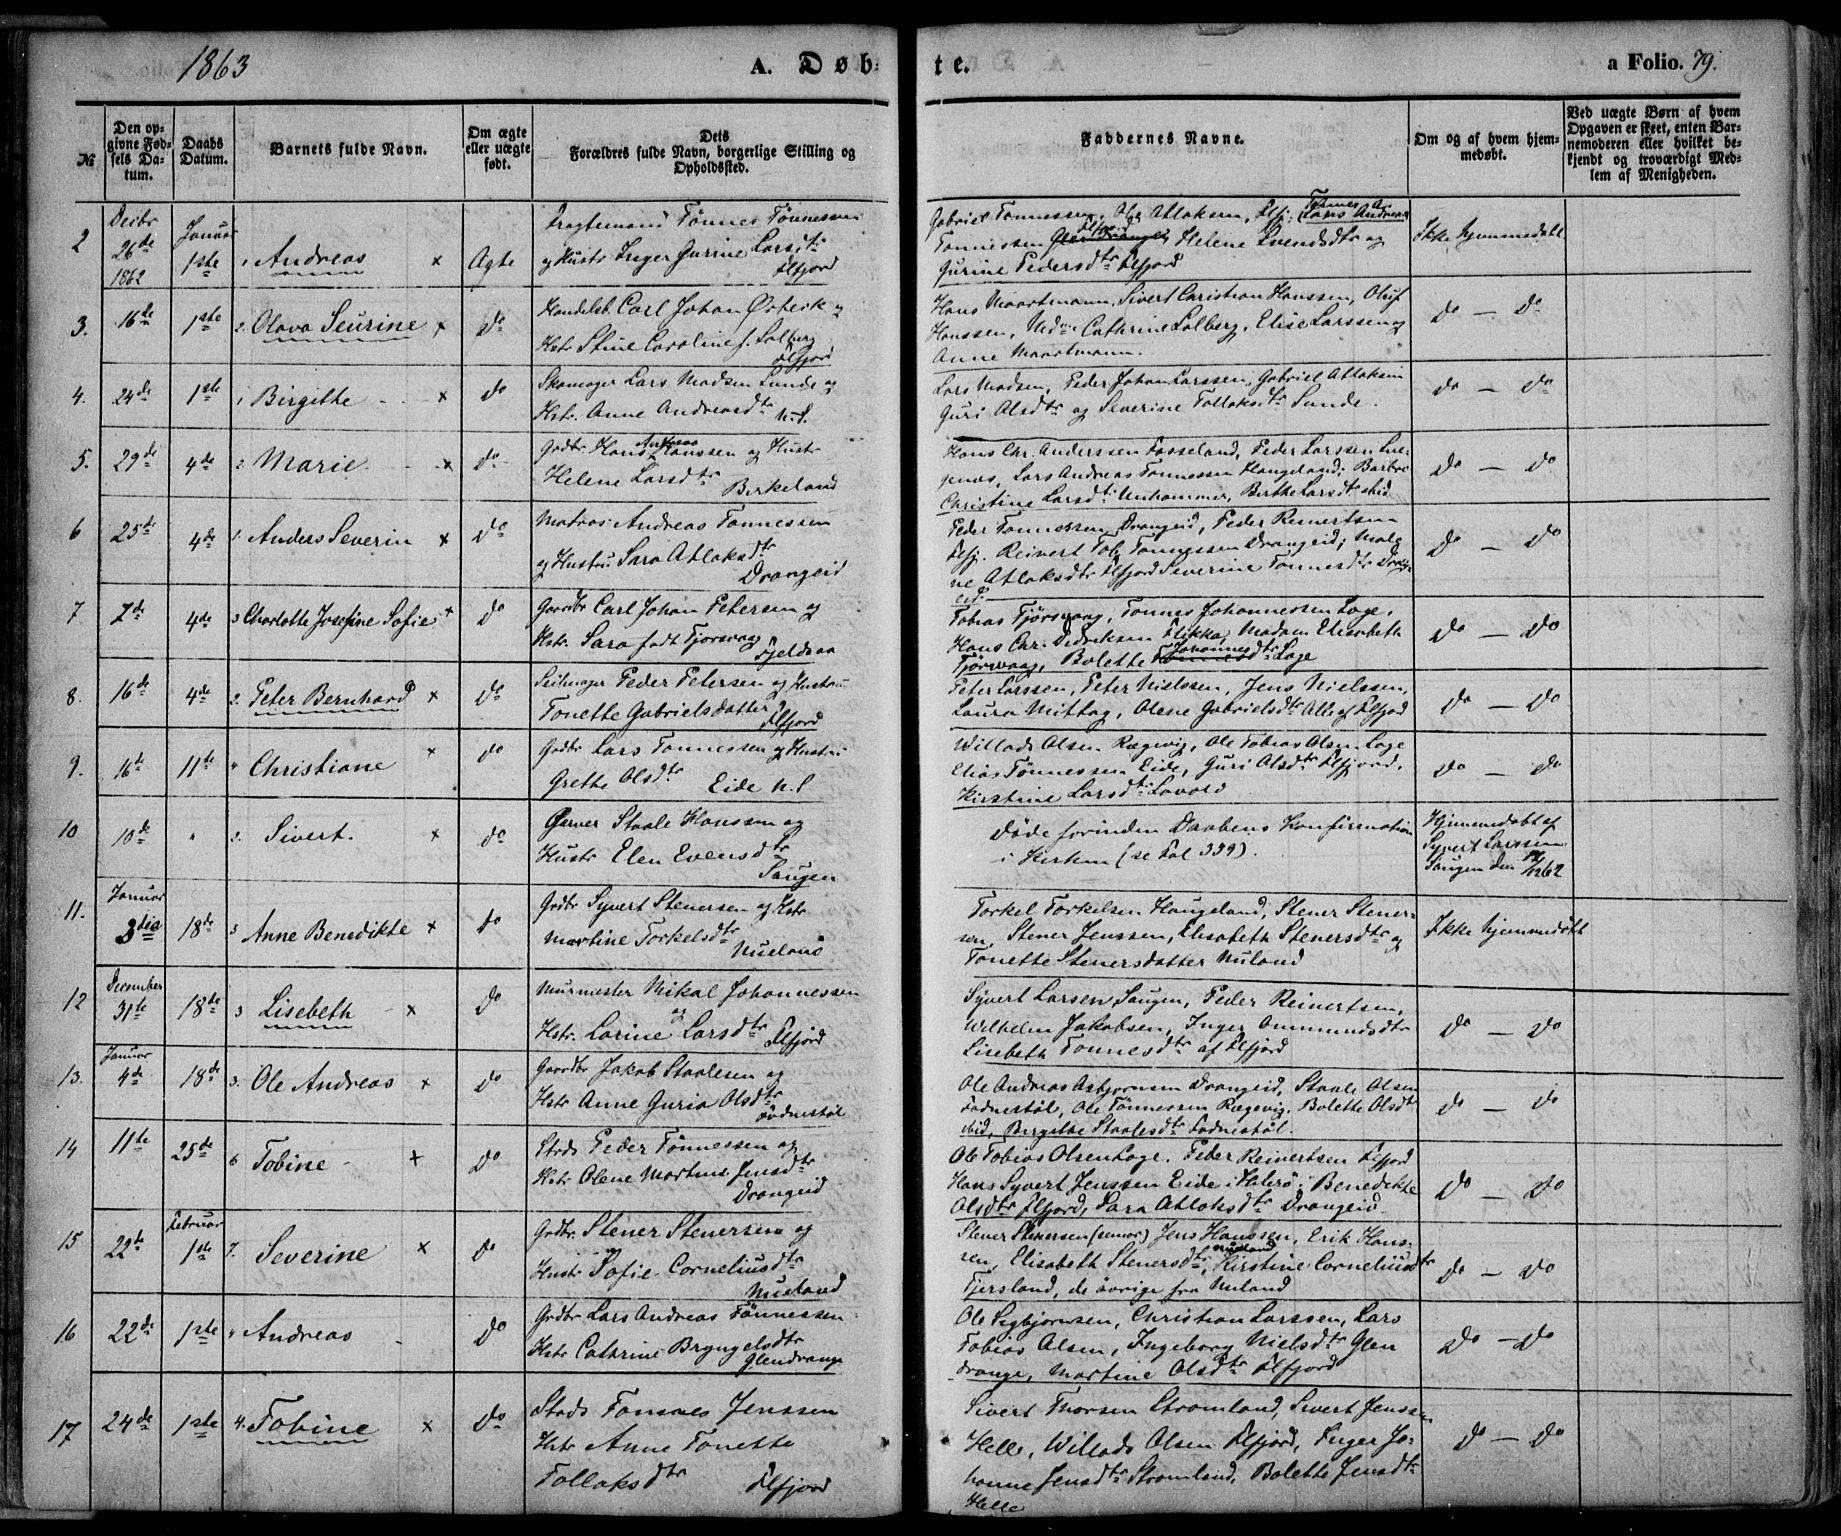 1863
A. Døb-
te.
a Folio. 79.
№
Den op-
givne Fød-
sels Da-
tum.
Daabs
Datum.
Barnets fulde Navn.
Om ægte
eller uægte
født.
Dets
Forældres fulde Navn, borgerlige Stilling og
Opholdssted.
Faddernes Navne.
Om og af hvem hjem-
medøbt.
Ved uægte Børn af hvem
Opgaven er skeet, enten Bar-
nemoderen eller hvilket be-
kjendt og troværdigt Med-
lem af Menigheden.
2
Decbr
26de
1862
Januar
1ste
1 Andreas ×
Ægte
Dragtemand Tønnes Tønnessen
og Hustr Inger Gurine Larsdtr
Flfjord
Gabriel Tønnessen, Ole Atlaksen, Flfj; Tønnes A
Tønnessen Flfjord, Helene Svendsdtr og
Gurine Pedersdtr Flfjord
Ikke hjemmedøbt
3.
16de
1ste
2. Olava Seurine ×
do
Handelsb. Carl Johan Ørbeck og
Hstr Stine Caroline f. Solberg
Flfjord
Hans Maartmann, Sivert Christian Hanssen, Oluf
Hanssen, Mdm Cathrine Solberg, Elise Larssen og
Anne Maartmann.
do — do
4.
24de
1ste
1 Birgithe ×
do
Skomager Lars Madsen Sunde og
Hstr. Anne Andreasdtr N.S.
Lars Madsen, Peder Johan Larssen, Gabriel Atlaksen
Guri Olsdtr og Severine Tollaksdtr Sunde.
do — do
5.
29de
4de
2 Marie ×
do
Gadbr Hans Andreas Hanssen og Hustr
Helene Larsdtr Birkeland
Hans Chr. Anderssen Fosseland, Peder Larssen Lue-
genas, Lars Andreas Tønnessen Haugeland; Barbro
Christine Larsdtr Unhammer, Berthe Larsdtr ibid
do — do
6
25de
4de
1. Anders Severin ×
do
Matros Andreas Tønnessen
og Hustru Sara Atlaksdtr
Drangeid
Peder Tønnessen Drangeid, Peder Reinertsen
Flfj. Reinert Tob. Tønnessen Drangeid; Male
ne Atlaksdtr Flfjord Severine Tønnesdtr Drang-
eid.
do — do
7
7de
4de
3 Charlotte Josefine Sofie ×
do
Gaardbr Carl Johan Petersen og
Hstr. Sara født Tjorsvaag
Fjeldsaa
Tobias Tjørsvaag, Tønnes Johannessen Loge,
Hans Chr. Didriksen Flikka, Madam Elisabeth
Tjørsvaag, Bolette Johannesdtr Loge
do — do
8.
16de
4de
2. Peter Bernhard ×
do
Seilmager Peder Petersen og Hustru
Tonette Gabrielsdatter Flfjord
Peter Larssen, Peter Nielssen, Jens Nielssen,
Laura Mittag, Olene Gabrielsdtr Alle af Flfjord
do — do
9.
16de
11te
" Christiane ×
do
Gadbr Lars Tønnessen og Hustru
Grethe Olsdtr Eide N.S
Willads Olsen Rægevig, Ole Tobias Olsen Loge
Elias Tønnessen Eide, Guri Olsdtr Flfjord,
Kirstine Larsdtr Lavold
do — do
10
10de
"
2. Sivert. ×
do
Garver Staale Hanssen og
Hustr Elen Evensdtr
Saugen
Døde forinden Daabens Konfirmation
i Kirken (se Fol 339).
Hjemmedøbt af
Syvert Larssen
Saugen den 12/12 62
11.
Januar
3die
18de
3 Anne Benedikte ×
do
Grdbr Syvert Stenersen og Hstr
Martine Torkelsdtr
Nuland
Torkel Torkelsen Haugeland, Stener Stener-
sen, Stener Jenssen, Elisabeth Stenersdtr og
Tonette Stenersdatter Nuland
Ikke hjemmedøbt
12
December
31te
18de
3 Lisebeth ×
do
Murmester Mikal Johannessen
og
Hstr. Larine Larsdtr Flfjord
Syvert Larsen Saugen, Peder Reinertsen,
Wilhelm Jakobsen, Inger Ommundsdtr
Lisebeth Tønnesdtr af Flfjord
do — do
13.
Januar
4de
18de
3. Ole Andreas ×
do
Gaardbr Jakob Staalesen og
Hstr Anne Guria Olsdtr
Lødnestøl
Ole Andreas Asbjørnsen Drangeid, Staale Olsen
Lødnestøl, Ole Tønnessen Rægevig, Bolette Olsdtr
ibid, Bergithe Staalesdtr Lødnestøl.
do — do
14
11te
25de
6 Tobine ×
do
Strds Peder Tønnessen og
Hstr Olene Martine Jensdtr
Drangeid
Ole Tobias Olsen Loge, Peder Reinertsen Flfjord
Hans Syvert Jenssen Eide i Hiterø; Benedikte
Olsdtr Flfjord, Sara Atlaksdtr Drangeid.
do — do
15
22de
Februar
1ste
7. Severine ×
do
Grdbr. Stener Stenersen og
Hustr Sofie Corneliusdtr
Nuland
Stener Stenersen (senior) Jens Hanssen, Erik Hans-
sen, Elisabeth Stenersdtr, Nuland Kirstine Corneliusdtr
Fjersland, de øvrige fra Nuland
do — do
16
22de
1ste
" Andreas
do
Grdbr Lars Andreas Tønnessen
Hstr Cathrine Bryngelsdtr
Glendrange
Ole Sigbjørnsen, Christian Larssen, Lars
Tobias Olsen, Ingeborg Nielsdtr Glen
drange, Martine Olsdtr Flfjord
do — do
17
24de
1ste
4. Tobine ×
do
Strds Tønnes Jenssen
Hstr Anne Tonette
Tollaksdtr Flfjord
Sivert Thorsen Stromland, Sivert Jenssen
Helle, Willads Olsen Flfjord, Inger Jo-
hanne Jensdtr Stromland, Bolette Jensdtr
Helle
do — do